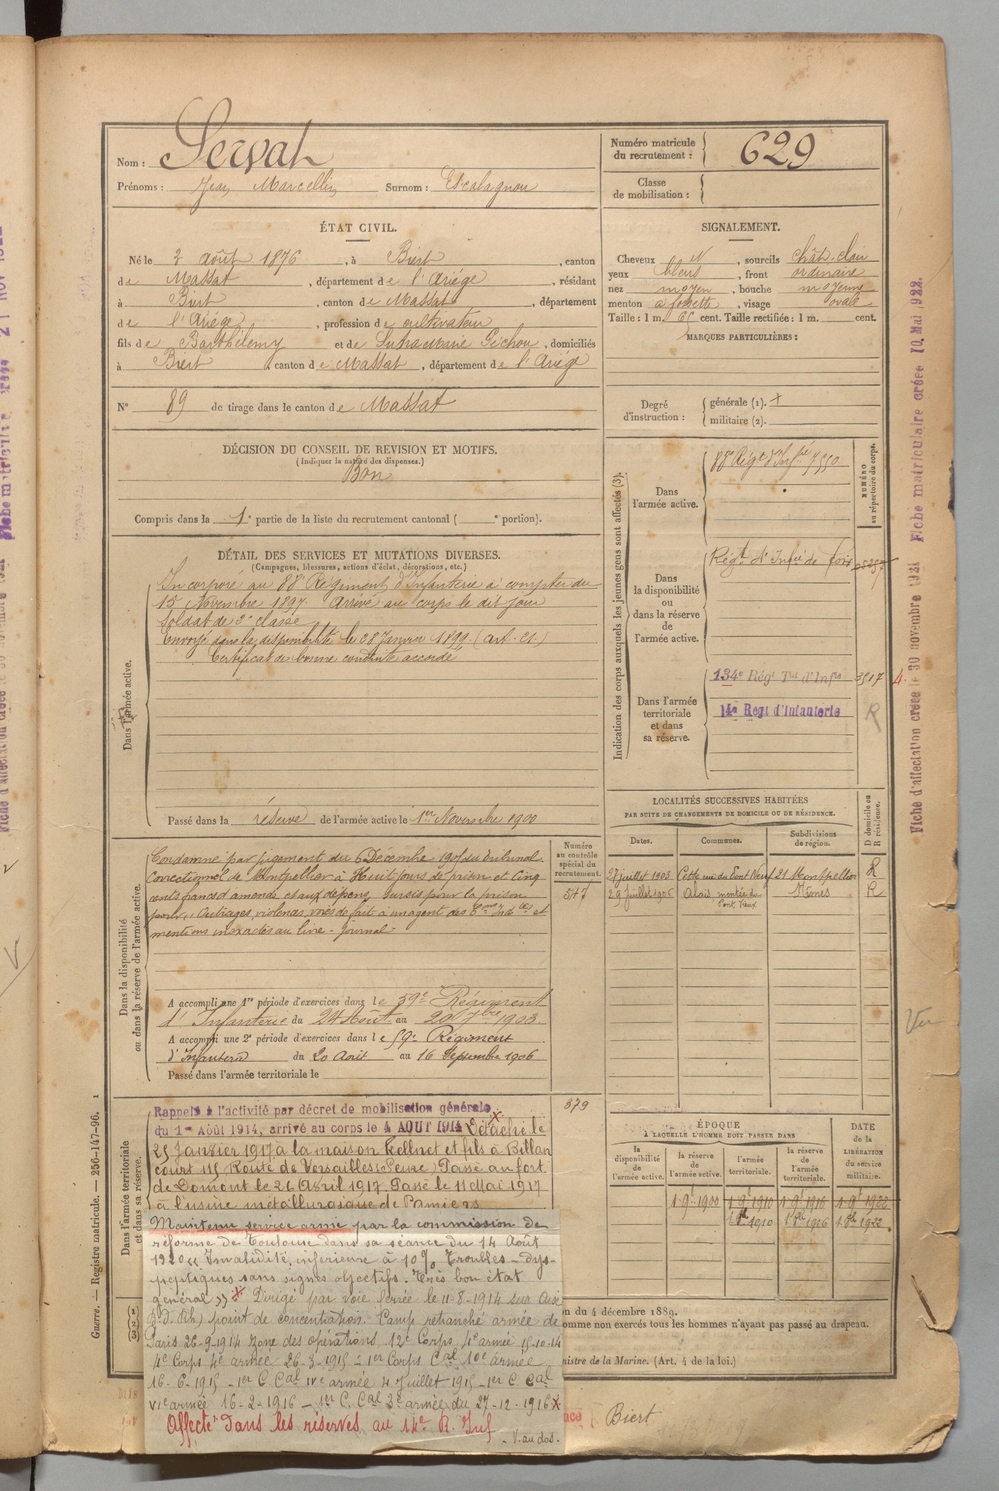 Nom : Servat
Prénoms : Jean Marcellin Surnom : Escalagnou
Numéro matricule du recrutement : 629
Classe de mobilisation :
ÉTAT CIVIL.
Né le 3 août 1876, à Biert, canton
de Massat, département de l'Ariège, résidant
à Biert, canton de Massat, département
de l'Ariège, profession de cultivateur
fils de Barthélemy et de Pichou, domiciliés
à Biert canton de Massat, département de l'Ariège
N° 89 de tirage dans le canton de Massat
DÉCISION DU CONSEIL DE REVISION ET MOTIFS.
(Indiquer la nature des dispenses.)
Bon
Compris dans la 1e partie de la liste du recrutement cantonal ( e portion).
DÉTAIL DES SERVICES ET MUTATIONS DIVERSES.
(Campagnes, blessures, actions d'éclat, décorations, etc.)
Dans l'armée active.
Incorporé au 88e Régiment d'Infanterie à compter du
15 Novembre 1897 Arrivé au corps le dit jour
Soldat de 2e classe
Envoyé dans la disponibilité le 08 Janvier 1899 (art. 21)
Certificat de bonne conduite accordé
Passé dans la réserve de l'armée active le 1er Novembre 1900
Dans la disponibilité ou dans la réserve de l'armée active.
Condamné par jugement du 6 Décembre 1905 du tribunal
Correctionnel de Montpellier à Huit jours de prison et Cinq
cents francs d'amende et aux dépens, Sursis pour la prison
pour : Outrages, violences, voies de fait à un agent des Ctions Indtes et
mentions inexactes au livre-journal
Numéro au contrôle spécial du recrutement.
547
A accompli une 1re période d'exercices dans le 59e Régiment
d'Infanterie du 24 Août au 20 7bre 1903.
A accompli une 2e période d'exercices dans le 59e Régiment
d'Infanterie du 20 Août au 16 Septembre 1906
Passé dans l'armée territoriale le
Dans l'armée territoriale et dans sa réserve.
879
Rappelé à l'activité par décret de mobilisation générale
du 1er Août 1914, arrivé au corps le 4 AOUT 1914 Détaché le
25 Janvier 1917 à la maison Fellnet et fils à Billan
court 115 Route de Versailles (Seine) Passé au fort
de Domont le 26 Avril 1917. Passé le 11 Mai 1917
à l'usine métallurgique de Pamiers
Maintenu service armé par la commission de
réforme de Toulouse dans sa séance du 14 Août
1920 « Invalidité inférieure à 10% Troubles dys-
peptiques sans signes objectifs. Très bon état
général » * Dirigé par voie ferrée le 11-8-1914 sur
point de concentration. Camp retranché armée de
Paris 26-9-1914 zone des opérations 12e Corps, 4e armée 15-10-14
4e Corps 4e armée 26-3-1915 - 1er Corps Cal 10e armée
16-6-1915 - 1er C. Cal IVe armée 4 Juillet 1915 - 1er C. Cal
VIe armée 16-2-1916 - 1er C. Cal 3e armée du 27-12-1916 x
Affecté dans les réserves au 14e R. Inf
V. au dos.
SIGNALEMENT.
Cheveux N, sourcils chât. clair
yeux bleus, front ordinaire
nez moyen, bouche moyenne
menton à fossette, visage ovale
Taille : 1 m. 65 cent. Taille rectifiée : 1 m. cent.
MARQUES PARTICULIÈRES :
Degré d'instruction : générale (1).
militaire (2).
Indication des corps auxquels les jeunes gens sont affectés (3).
NUMÉRO au répertoire du corps.
Dans l'armée active.
88e Régt d'Infrie 7550
Dans la disponibilité ou dans la réserve de l'armée active.
Régt d'Infie de Foix
Dans l'armée territoriale et dans sa réserve.
134e Régt Tal d'Infie 3517
14e Regt d'Infanterie R
LOCALITÉS SUCCESSIVES HABITÉES
PAR SUITE DE CHANGEMENTS DE DOMICILE OU DE RÉSIDENCE.
Dates. Communes. Subdivisions de région. D domicile ou R résidence.
27 juillet 1903 Cette rue du Pont Neuf 21 Montpellier R
29 Juillet 190 Alais montée du Pont Vieux Nîmes R
ÉPOQUE
À LAQUELLE L'HOMME DOIT PASSER DANS
la disponibilité de l'armée active. la réserve de l'armée active. l'armée territoriale. la réserve de l'armée territoriale. DATE de la LIBÉRATION du service militaire.
1 9bre 1900 1 9bre 1910 1 9bre 1916 1 9bre 1922
1910 1916 1922
on du 4 décembre 1889.
omme non exercés tous les hommes n'ayant pas passé au drapeau.
nistre de la Marine. (Art. 4 de la loi.)
Biert
Guerre. — Registre matricule. — 256-147-96. 1
Fiche d'affectation créée le 30 novembre 1921 Fiche matriculaire créée 10 Mai 1922.
Vu